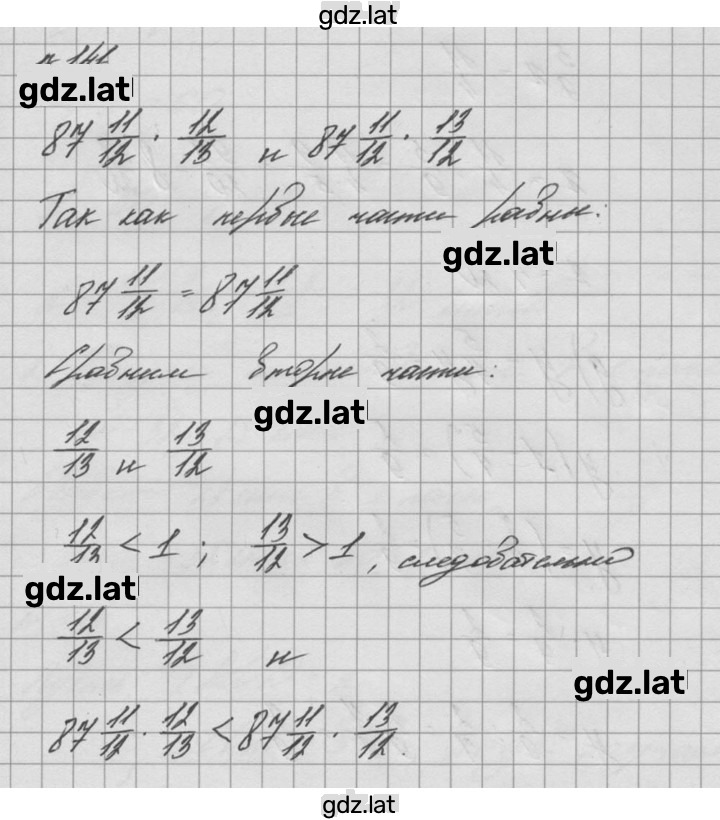 gdz.lat
n 141
gdz.lat
87 11/12 · 12/13 и 87 11/12 · 13/12
Так как первые части равны:
gdz.lat
87 11/12 = 87 11/12
Сравним вторые части:
gdz.lat
12/13 и 13/12
12/13 < 1 ; 13/12 > 1, следовательно
gdz.lat
12/13 < 13/12 и
gdz.lat
87 11/12 · 12/13 < 87 11/12 · 13/12.
gdz.lat